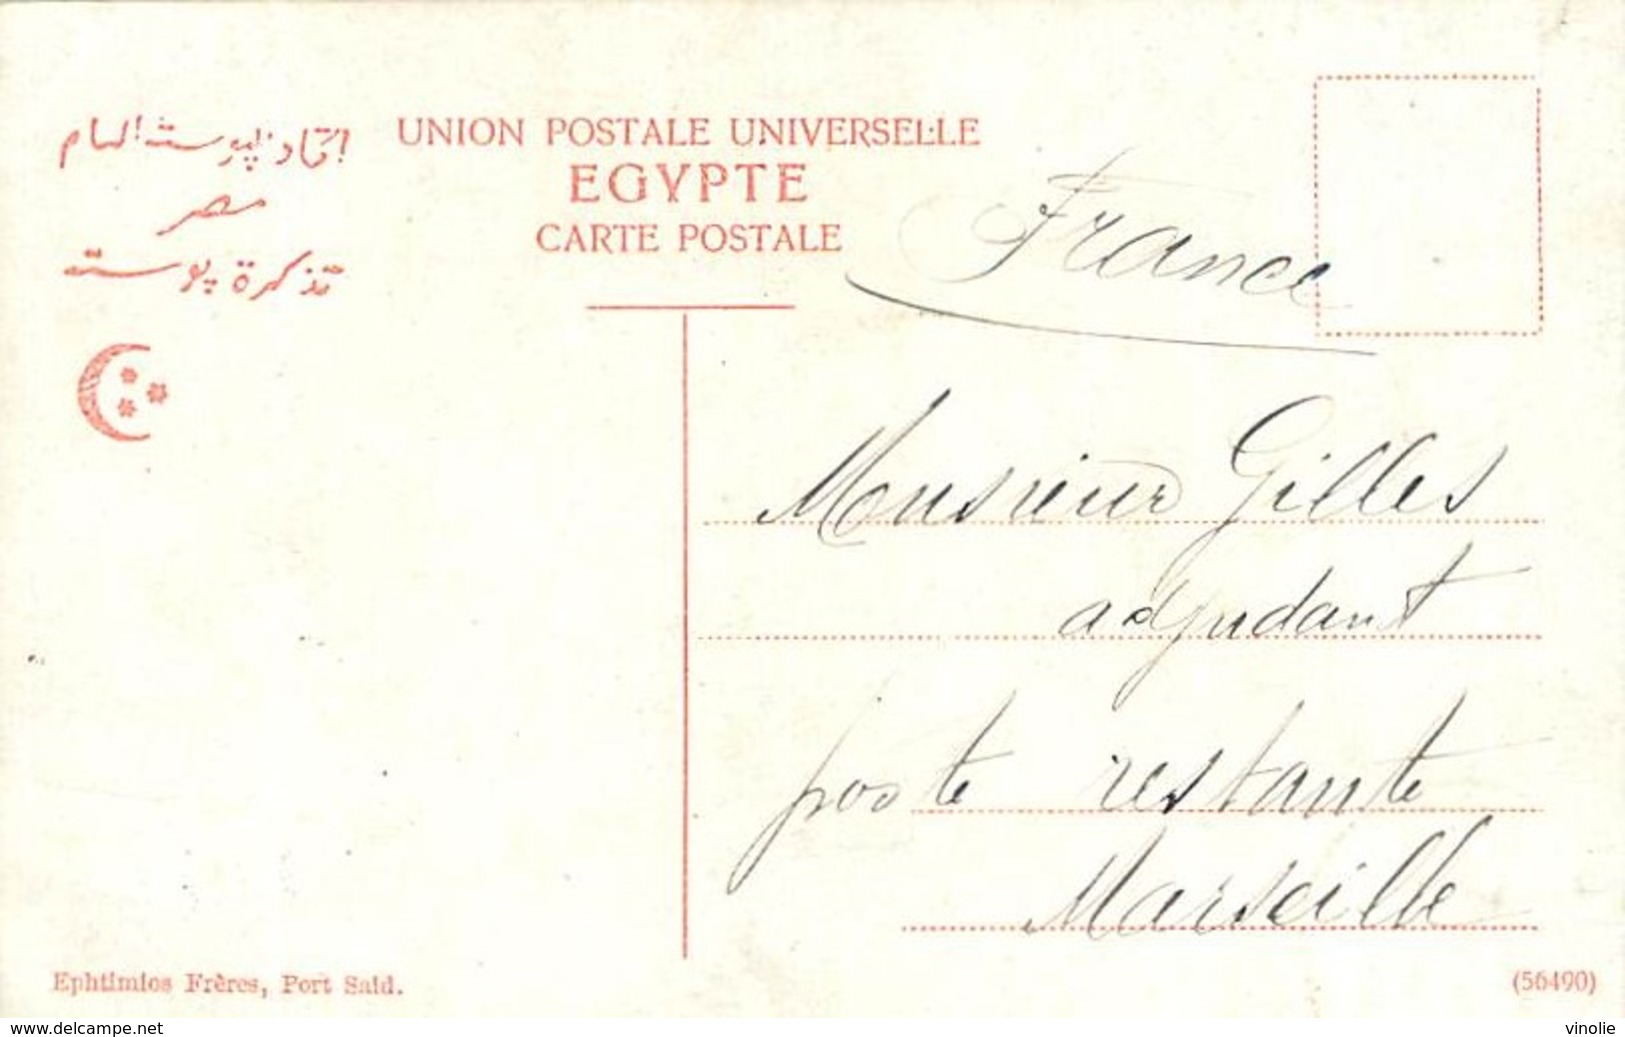 اتحاد پوستة العام
UNION POSTALE UNIVERSELLE
مصر
EGYPTE
تذكرة پوسته
CARTE POSTALE
France
Monsieur Gilles
adjudant
poste restante
Marseille
Ephtimios Frères, Port Said.
(56490)
www.delcampe.net
vinolie